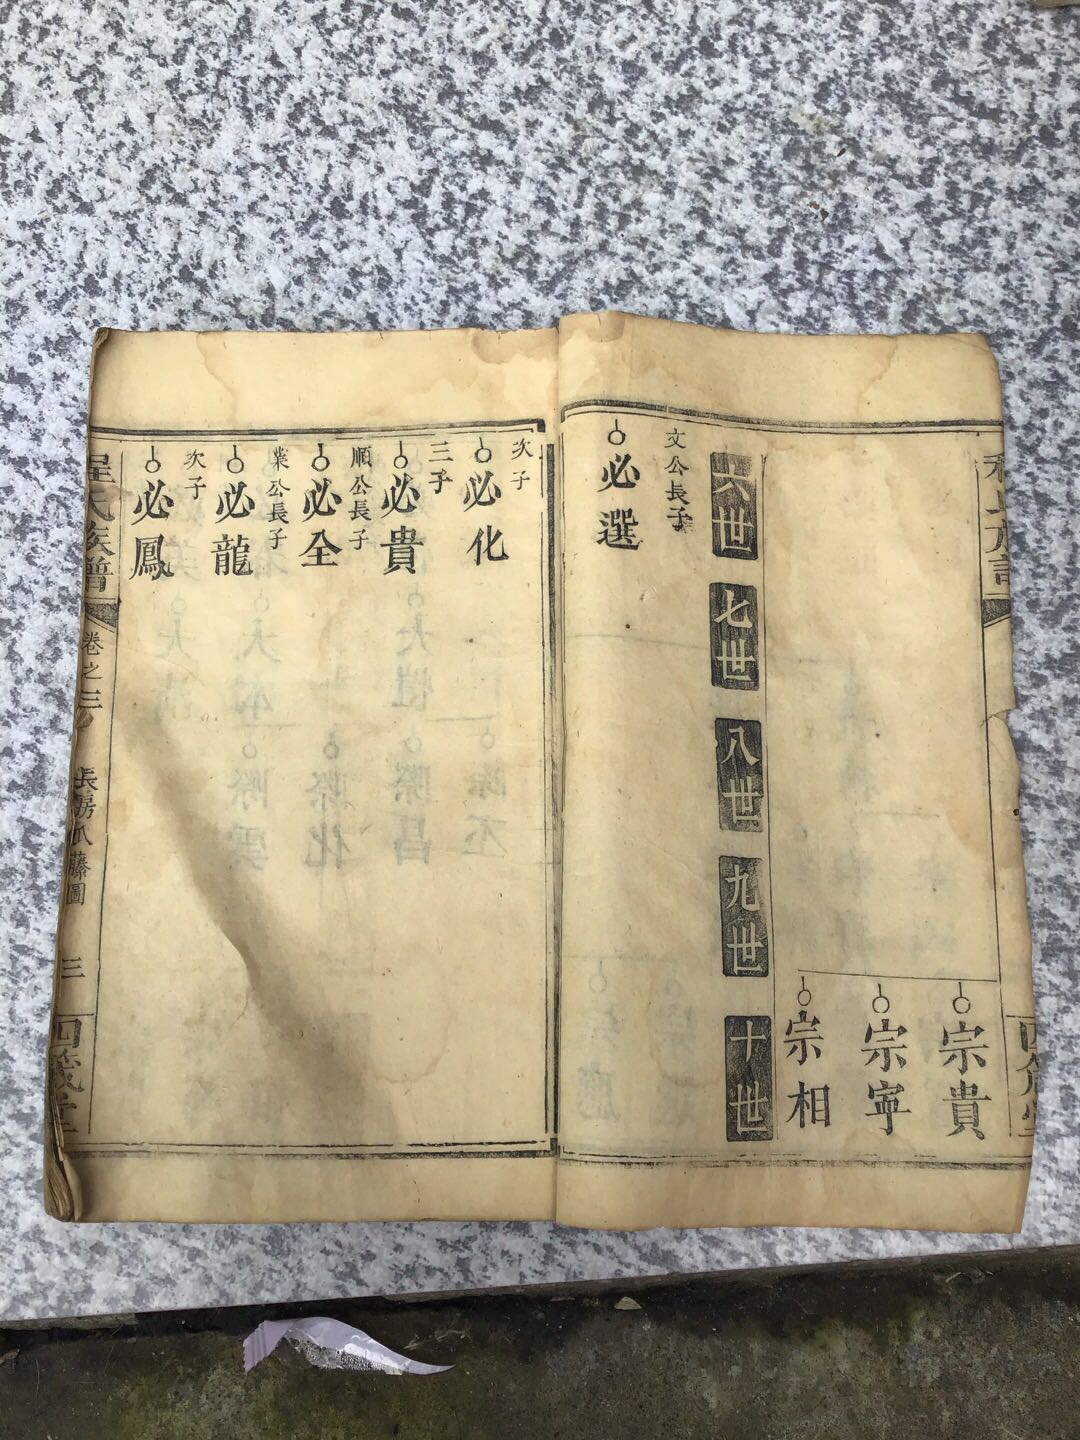 宗貴
宗寧
宗相
六世
七世
八世
九世
十世
文公長子
必選
次子
必化
三子
必貴
順公長子
必全
業公長子
必龍
次子
必鳳
程氏族譜
卷之三
長房瓜藤圖
三